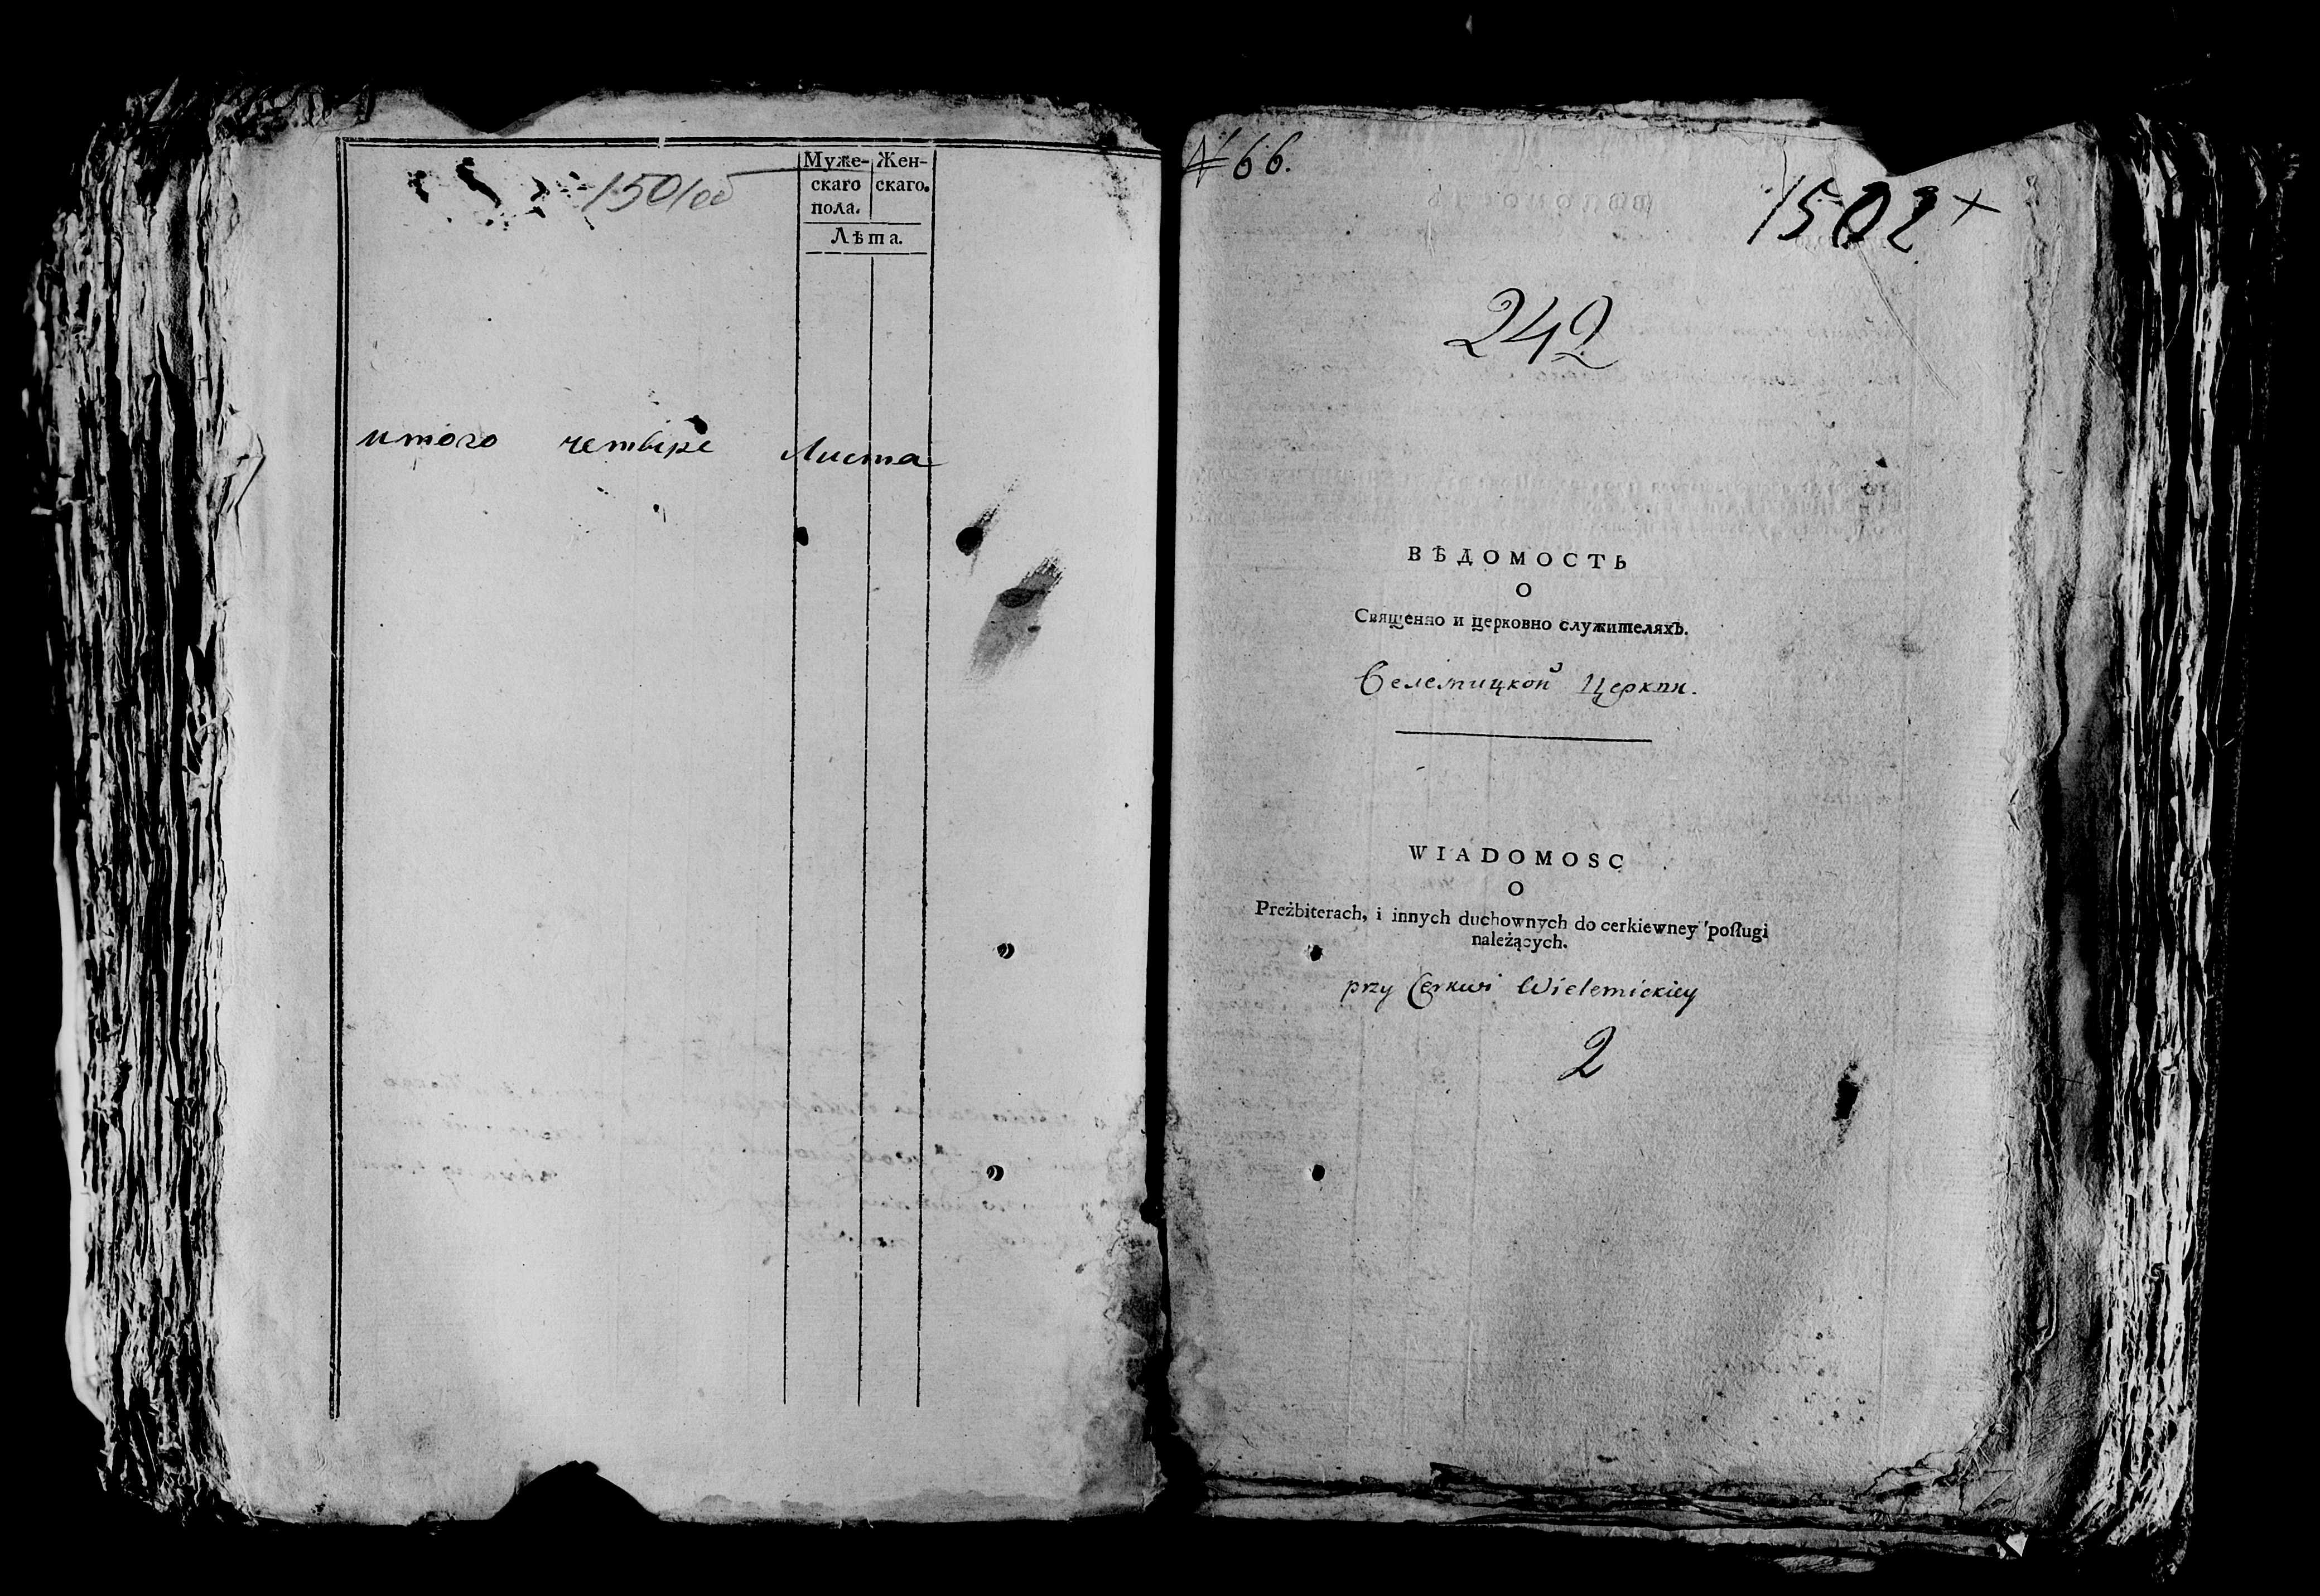 1501об
Муже- Жен-
скаго скаго.
пола.
Лѣта.
итого четыре Листа
№ 66.
1502
242
ВѢДОМОСТЬ
О
Священно и церковно служителяхъ.
Велемицкой Церкви.
WIADOMOSC
O
Preżbiterach, i innych duchownych do cerkiewney posługi
należących.
przy Cerkwi Wielemickiey
2